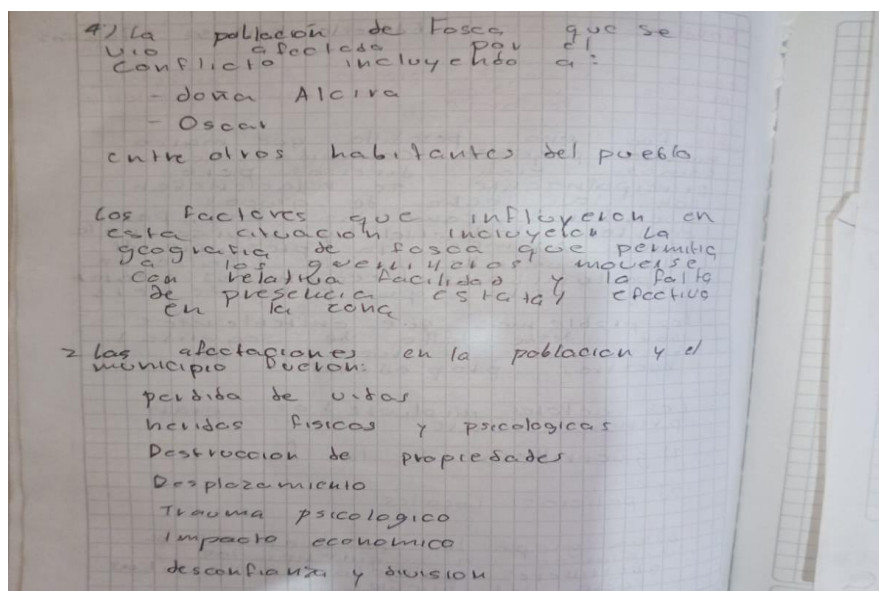 4) La poblacion de Fosca que se
vio afectada por el
conflicto incluyendo a:
- doña Alcira
- Oscar
entre otros habitantes del pueblo
Los factores que influyeron en
esta situacion incluyeron la
geografia de fosca que permitia
a los guerrilleros moverse
con relativa facilidad y la falta
de presencia estatal efectiva
en la zona
2 las afectaciones en la poblacion y el
municipio fueron:
perdida de vidas
heridas fisicas y psicologicas
Destruccion de propiedades
Desplazamiento
Trauma psicologico
Impacto economico
desconfianza y division